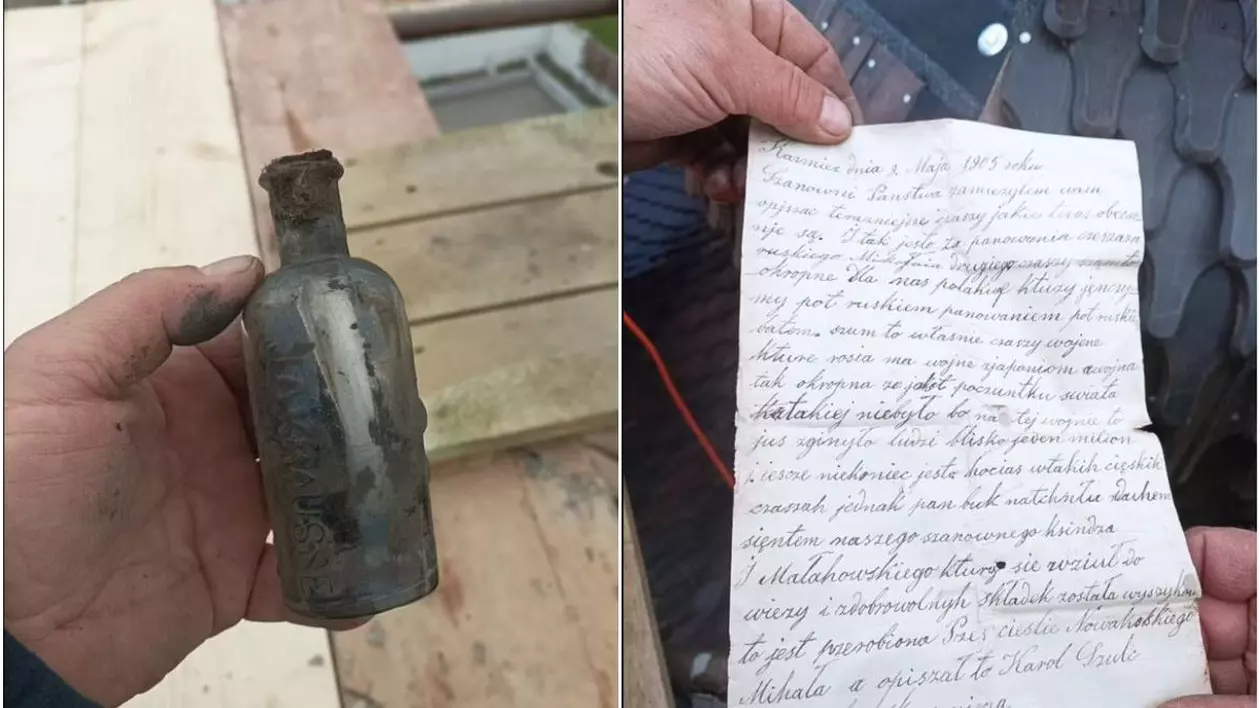 Kazmiez dnia 2 Maja 1905 roku
Szanowni Państwa zamiezylem wam
opjszac terazniejsze czaszy jakie teras obecz
nje są. I tak jesto że panowania czeszaza
ruskiego Mikołaia drugiego czaszy szą
okropne dla nas polakuw kturzy jęnczy
my pot ruskiem panowaniem pot ruskie
batem. szum to właśnie czaszy wojene
kture rosia ma wojne zjaponiom awojna
tak okropna ze jakot poczuntku swiata
takiej niebyło bo na tej wojnie to
jus zginyło ludzi blisko jeden milion
i iescze niekoniec jesto hocias wtakih cięskih
czaszah jednak pan buk natchnuł duchem
sięntem naszego szanownego ksindza
J Małahowskiego ktury sie wziuł do
wiezy i zdobrowolnyh składek została wyszykow
to jest pzerobiona Pszes cieslie Nowakowskiego
Mihała a opiszał to Karol Szulc